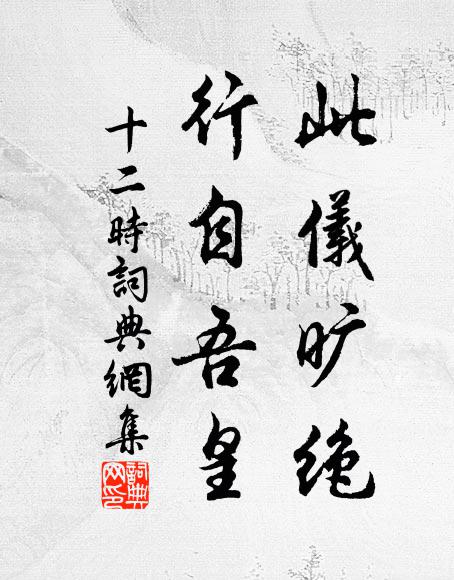 此儀旷绝
行自吾皇
十二時詞典網集
詞典
网印